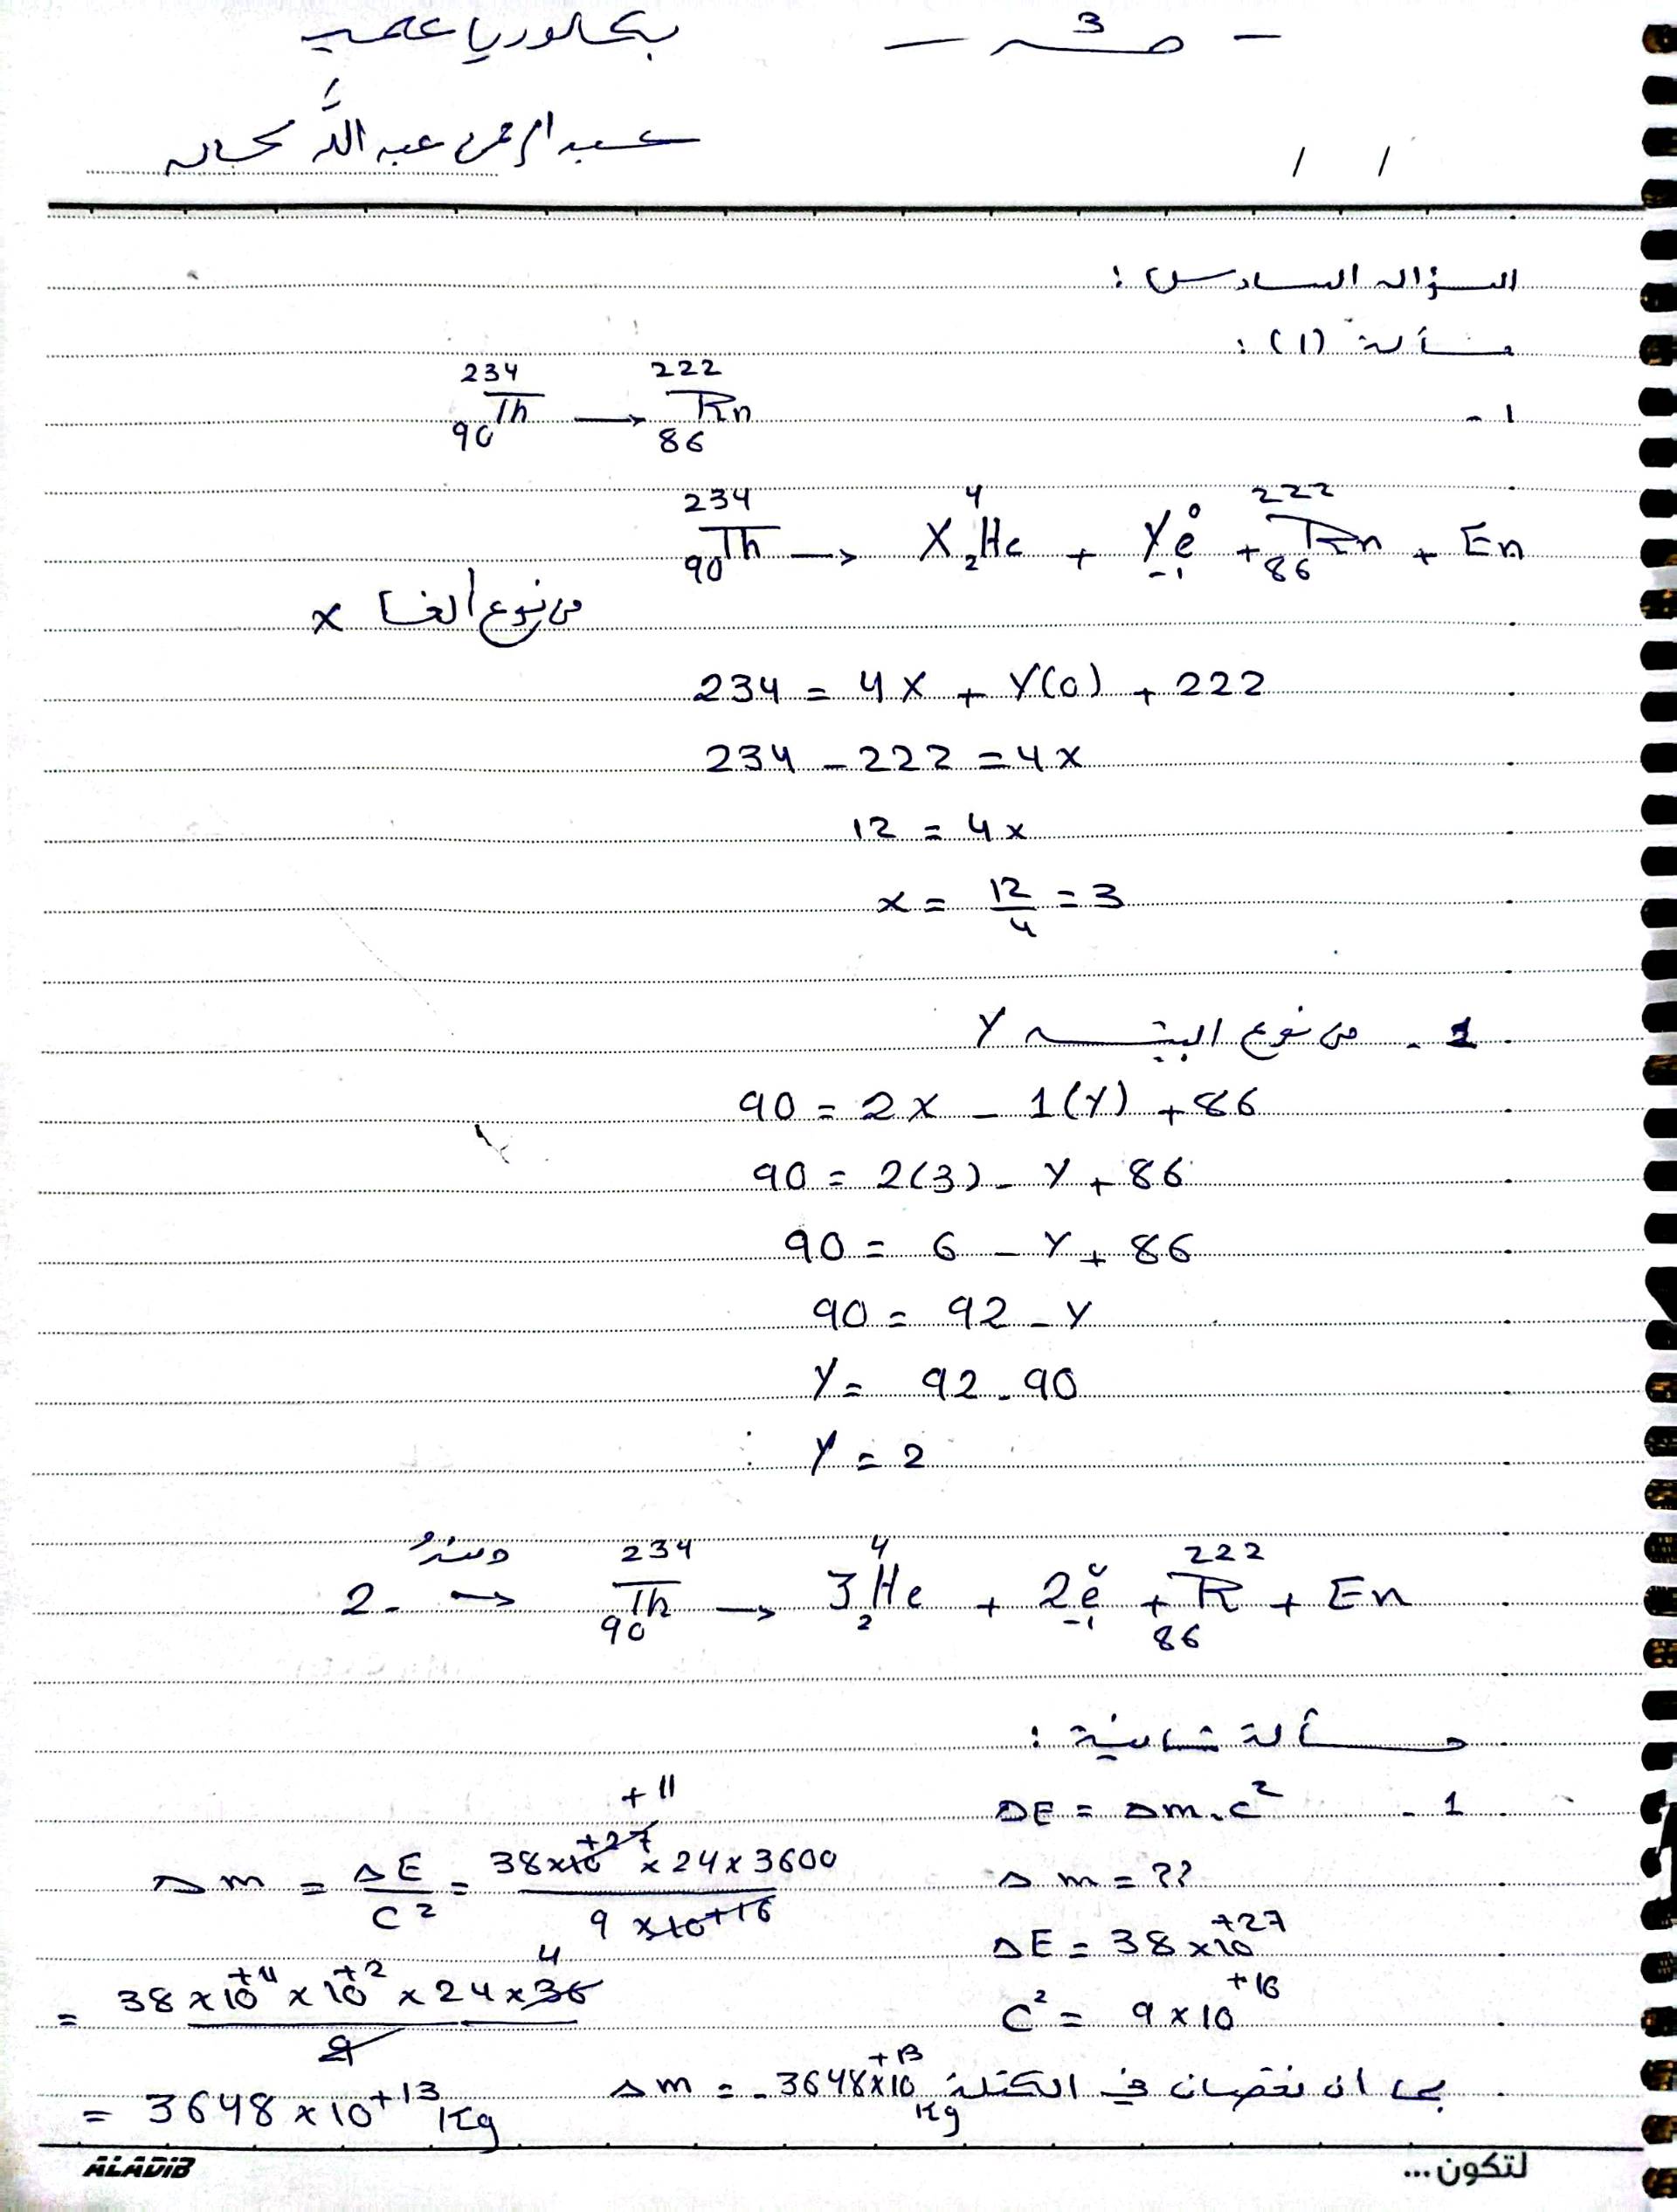 - ص3 - بكالوريا علمي
عبد الرحمن عبد الله
/ /
السؤال السادس :
مسألة (1) :
1 - ²³⁴₉₀Th → ²²²₈₆Rn
²³⁴₉₀Th → X ⁴₂He + Y ⁰₋₁e + ²²²₈₆Rn + En
من نوع ألفا x
234 = 4X + Y(0) + 222
234 - 222 = 4x
12 = 4x
x = 12/4 = 3
2 - من نوع البيتا Y
90 = 2x - 1(Y) + 86
90 = 2(3) - Y + 86
90 = 6 - Y + 86
90 = 92 - Y
Y = 92 - 90
Y = 2
2. → ²³⁴₉₀Th → 3 ⁴₂He + 2 ⁰₋₁e + ²²²₈₆R + En
مسألة ثانية :
1 - ΔE = Δm.c²
Δm = ??
ΔE = 38×10⁺²⁷
C² = 9×10⁺¹⁶
+11
Δm = ΔE/C² = 38×10⁺²⁷ × 24 × 3600 / 9×10⁺¹⁶
4
= 38×10⁺¹¹ × 10⁺² × 24 × 36 / 9
= 3648 × 10⁺¹³ Kg
بما ان نقصان في الكتلة Δm = - 3648×10⁺¹³ Kg
ALADIB
لتكون ...